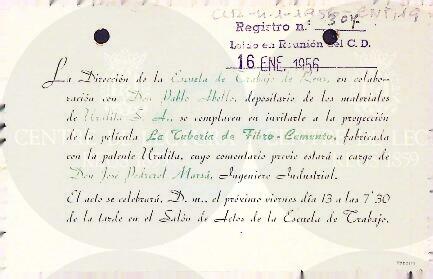 Registro n.º 504
Leído en Reunión del C. D.
16 ENE. 1956
La Dirección de la Escuela de Trabajo de Reus, en colabo-
ración con Don Pablo Abelló, depositario de los materiales
de Uralita S. A., se complacen en invitarle a la proyección
de la película La Tubería de Fibro-Cemento, fabricada
con la patente Uralita, cuyo comentario previo estará a cargo de
Don José Pedrerol Marsá, Ingeniero Industrial.
El acto se celebrará, D. m., el próximo viernes día 13 a las 7'30
de la tarde en el Salón de Actos de la Escuela de Trabajo.